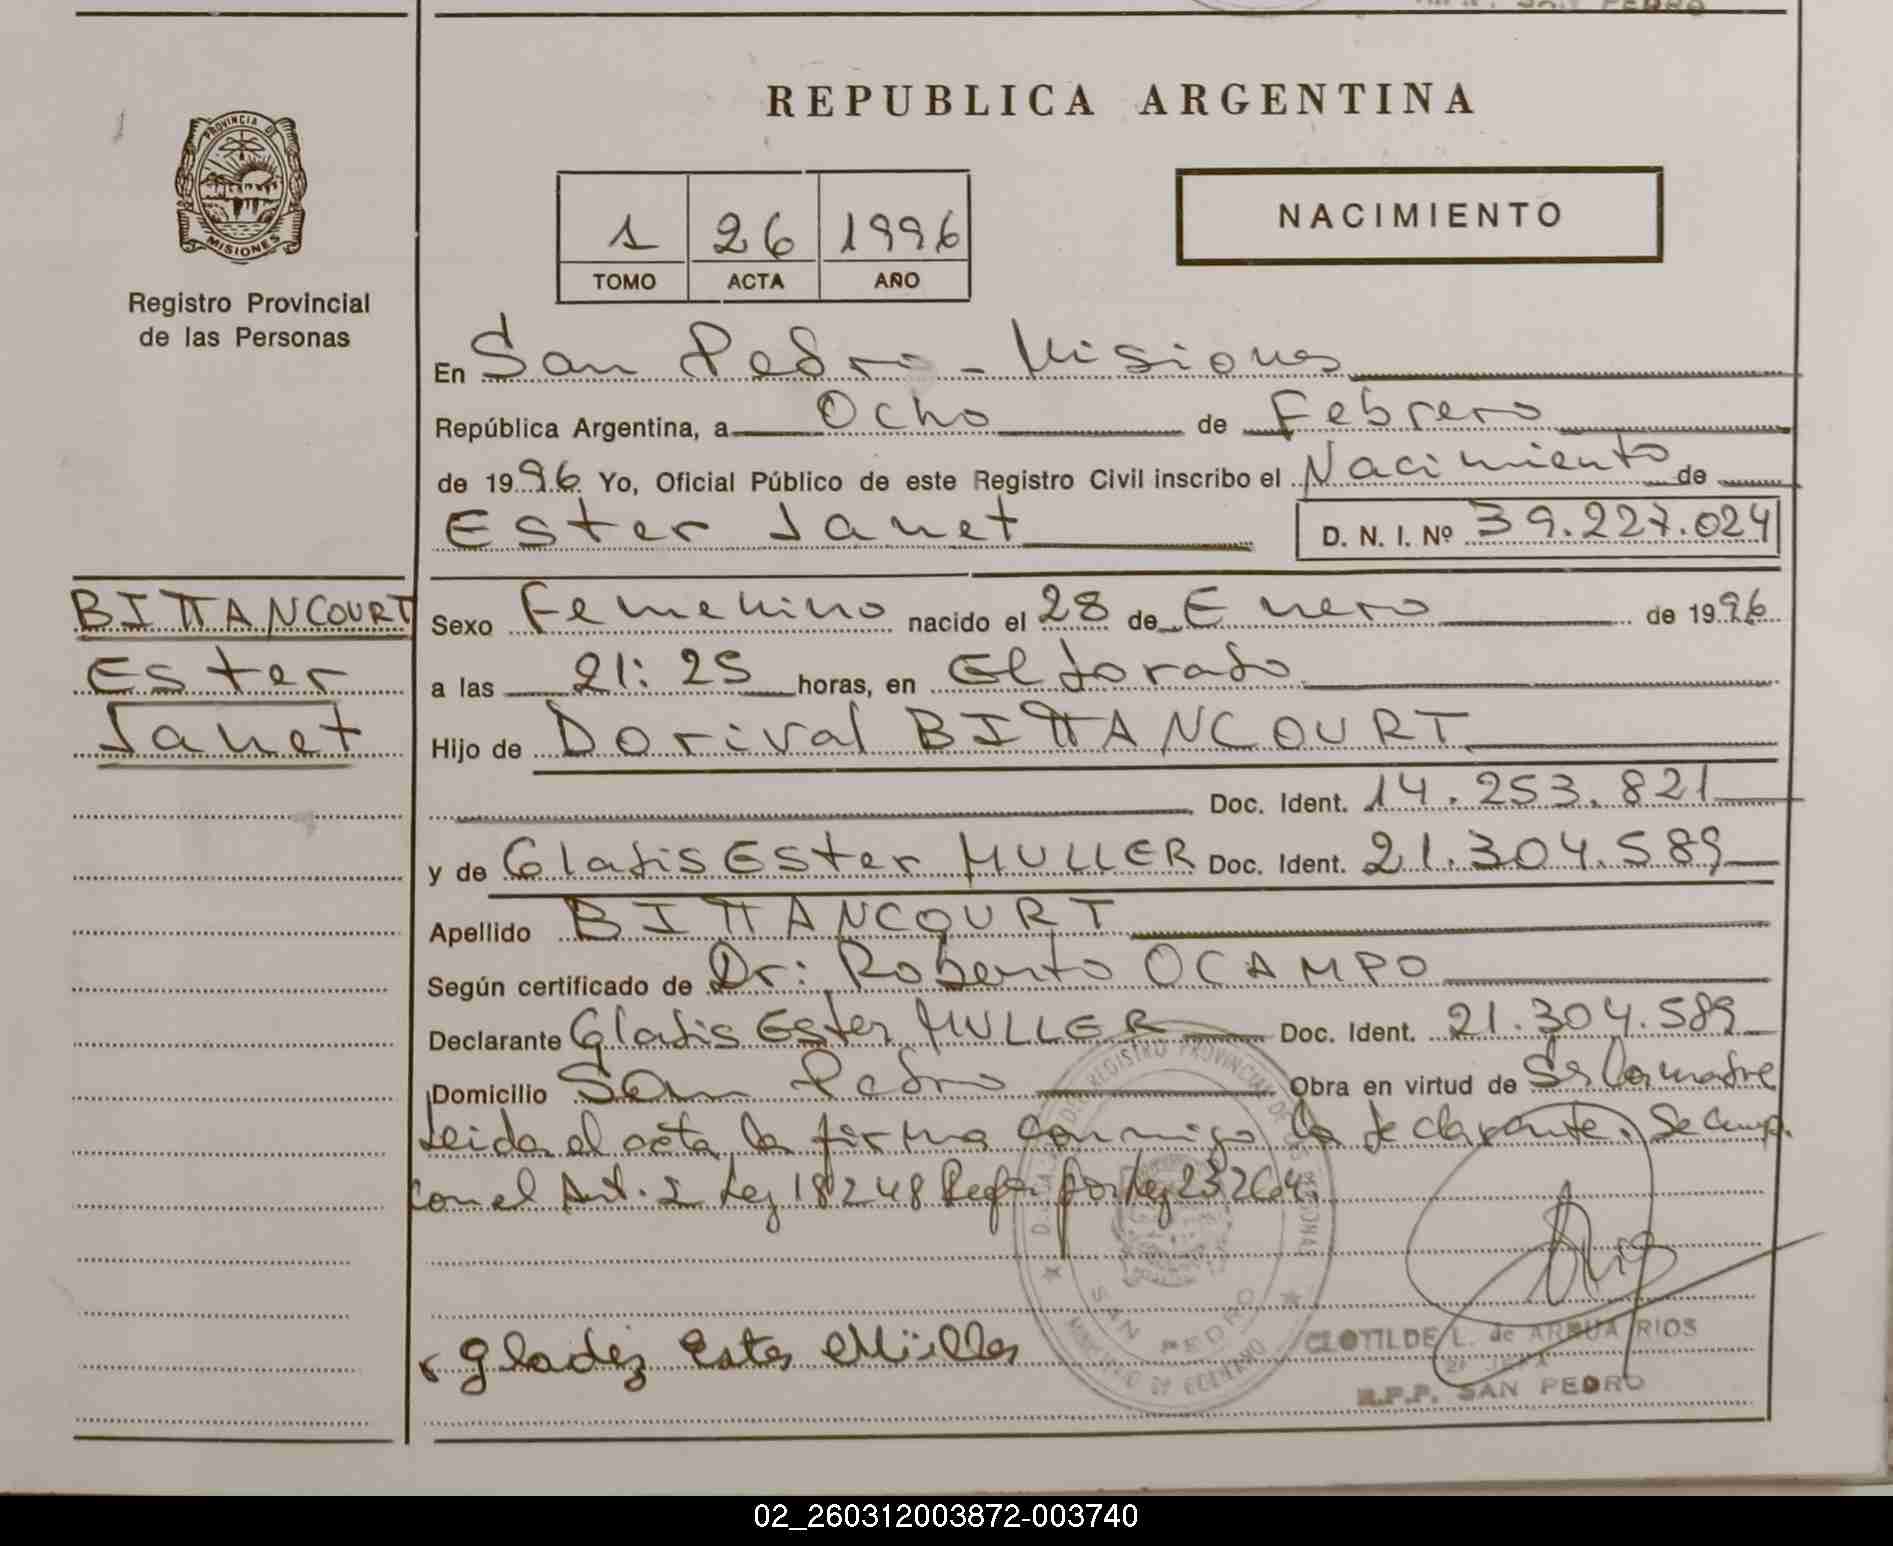 PROVINCIA DE
MISIONES
Registro Provincial
de las Personas
BITTANCOURT
Ester
Janet
REPUBLICA ARGENTINA
1 26 1996
TOMO ACTA AÑO
NACIMIENTO
En San Pedro - Misiones
República Argentina, a Ocho de Febrero
de 1996 Yo, Oficial Público de este Registro Civil inscribo el Nacimiento de
Ester Janet D. N. I. Nº 39.227.024
Sexo Femenino nacido el 28 de Enero de 1996
a las 21:25 horas, en Eldorado
Hijo de Dorival BITTANCOURT
Doc. Ident. 14.253.821
y de Gladis Ester MULLER Doc. Ident. 21.304.589
Apellido BITTANCOURT
Según certificado de Dr: Roberto OCAMPO
Declarante Gladis Ester MULLER Doc. Ident. 21.304.589
Domicilio San Pedro Obra en virtud de Ser la madre
Leida el acta la firma conmigo la declarante. Se cump.
con el Art. 2 Ley 18248 por Ley 23264.
gladiz Ester Müller
SAN PEDRO
CLOTILDE L. de ARRUA RIOS
2º JEFA
R.P.P. SAN PEDRO
02_260312003872-003740